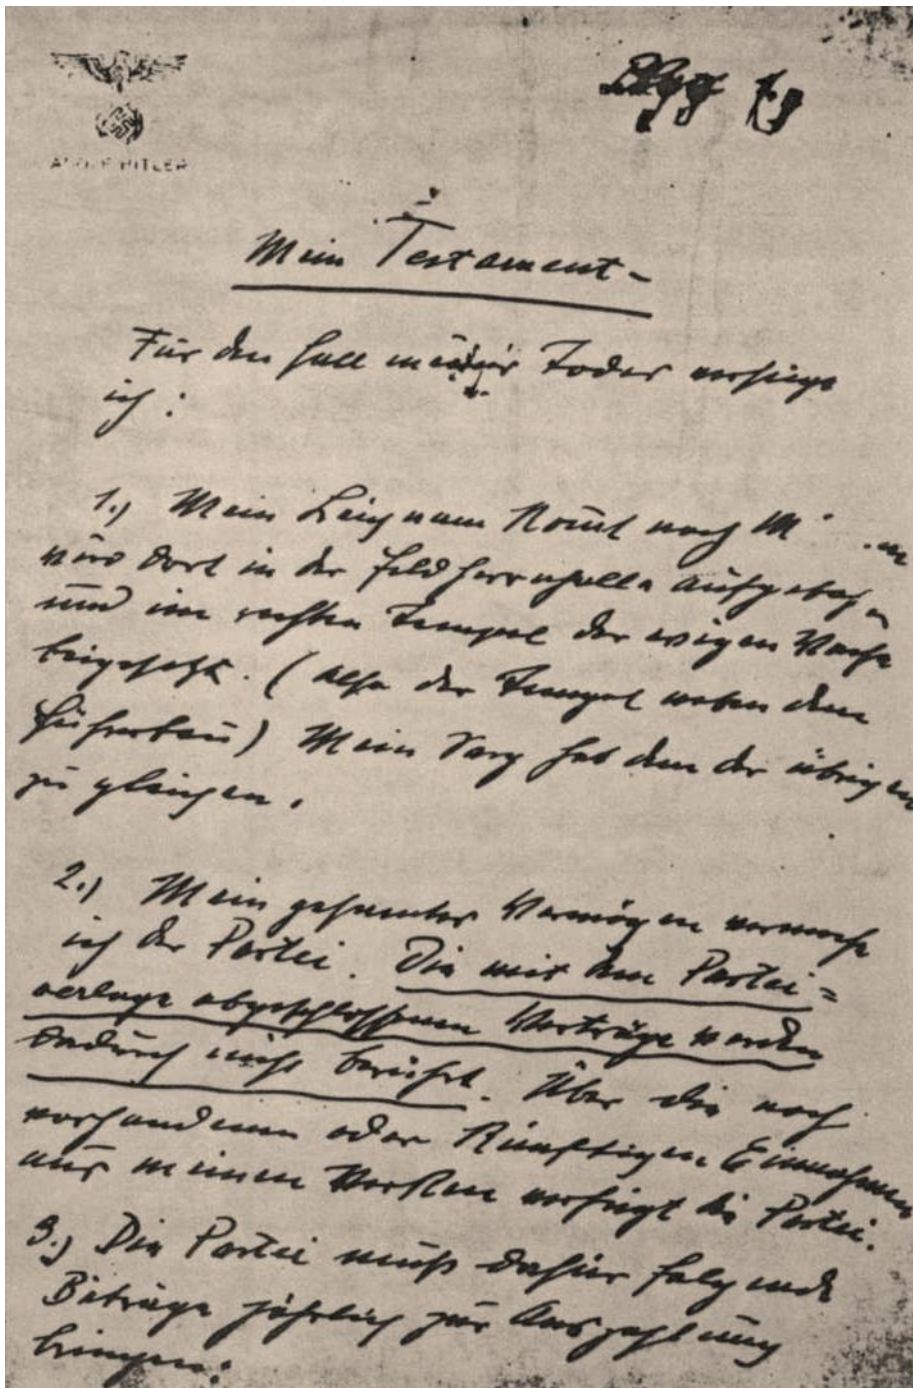 ADOLF HITLER
Mein Testament-
Für den Fall meines Todes verfüge
ich:
1.) Mein Leichnam kommt nach M
wird dort in der Feldherrnhalle aufgebah
und im rechten Tempel der ewigen Wache
beigesetzt. (Also der Tempel neben dem
Führerbau) Mein Sarg hat dem der übrigen
zu gleichen.
2.) Mein gesamtes Vermögen vermache
ich der Partei. Die mit dem Partei=
verlage abgeschlossenen Verträge werden
dadurch nicht berührt. Über die noch
vorhandenen oder künftigen Einnahmen
aus meinen Werken verfügt die Partei.
3.) Die Partei muß dafür folgende
Beträge jährlich zur Auszahlung
bringen: